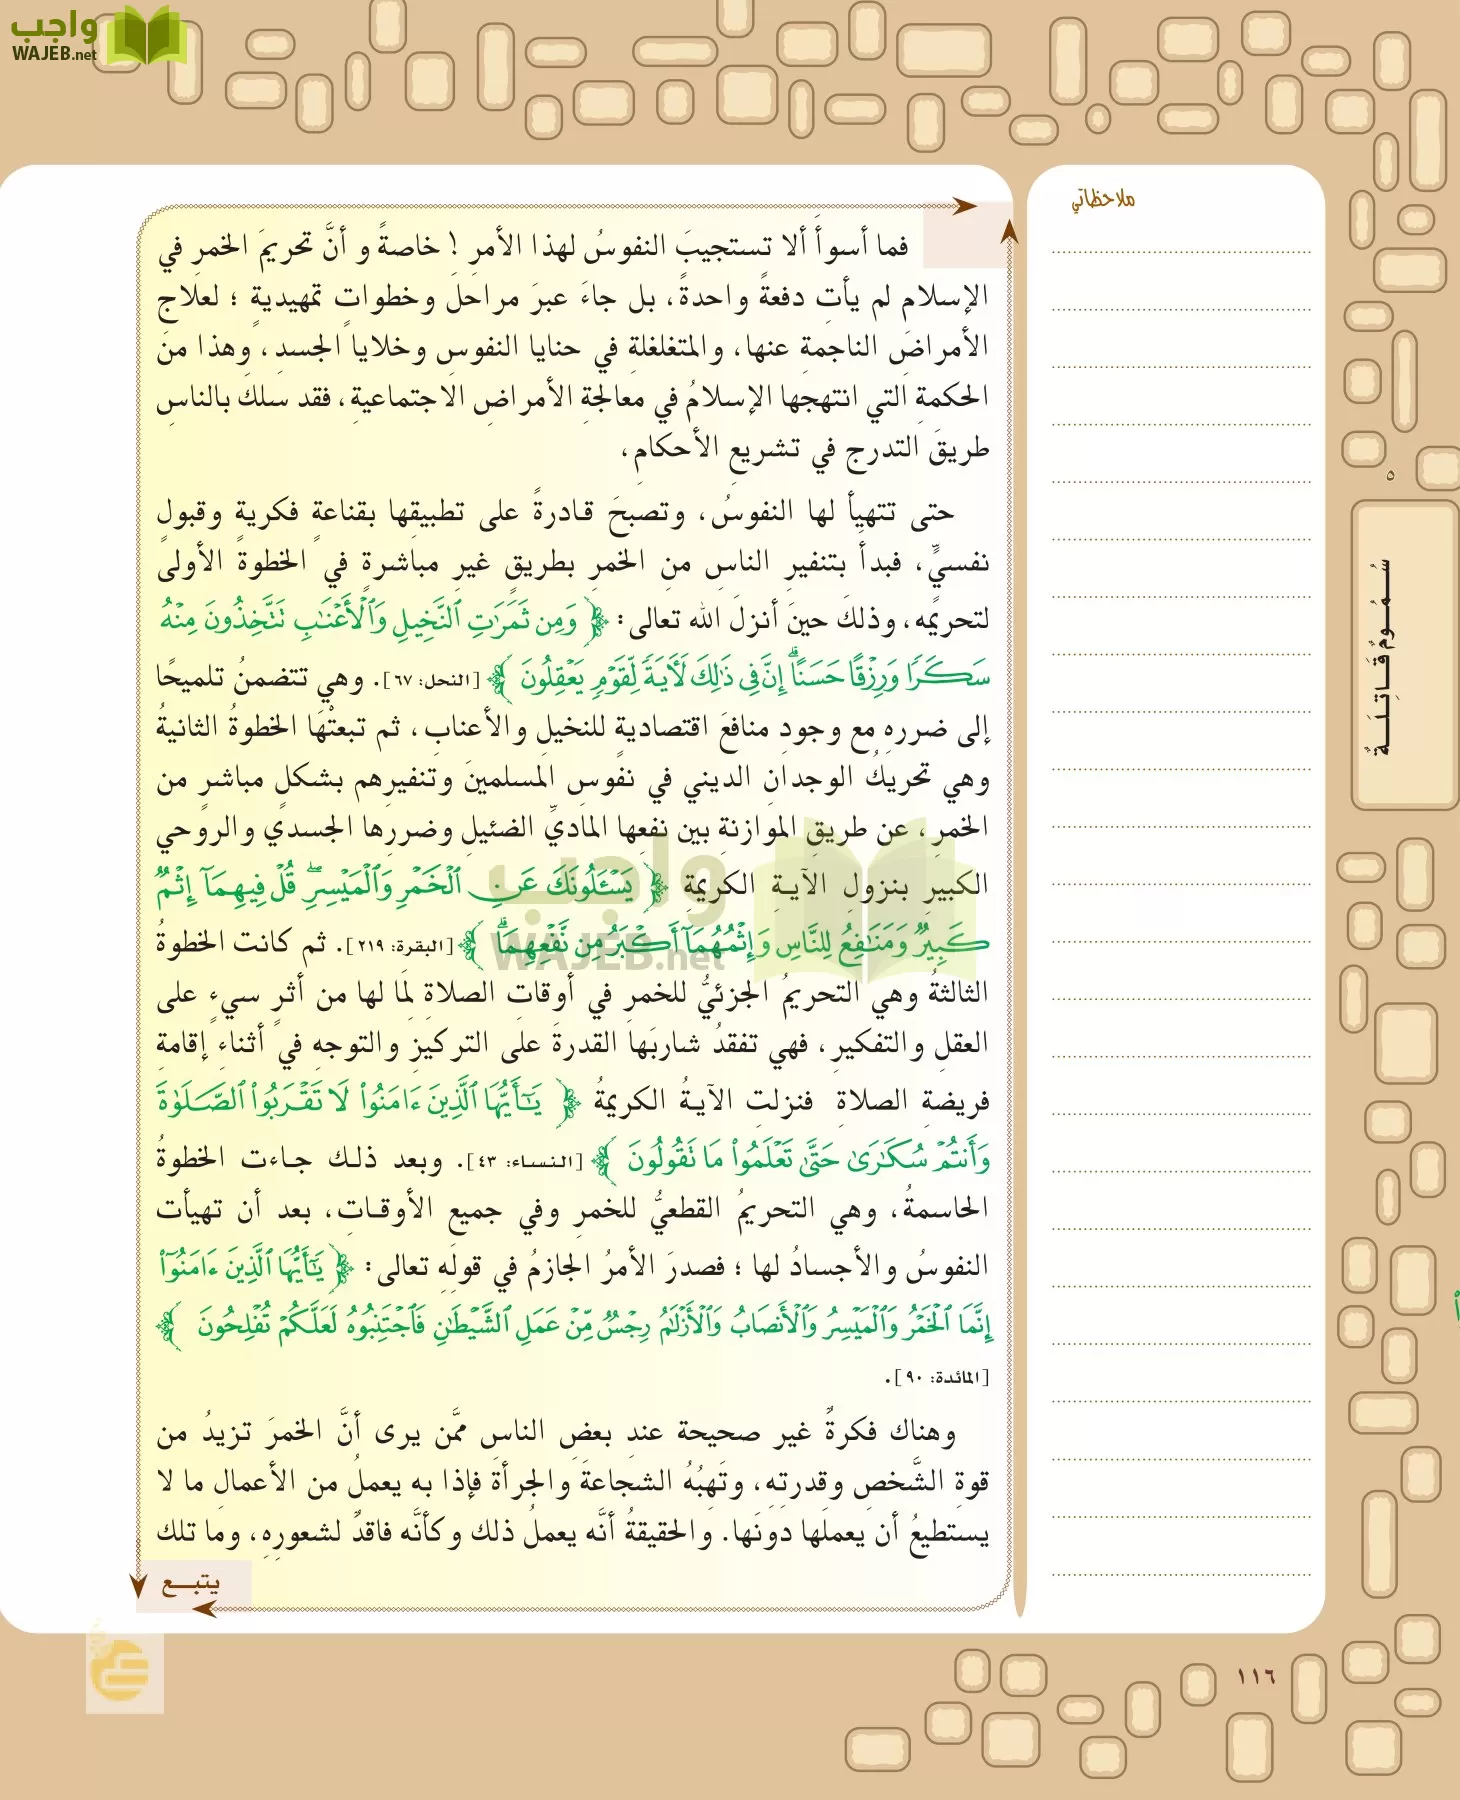 واجب
WAJEB.net
ملاحظاتي
فما أسوأَ ألا تستجيبَ النفوسُ لهذا الأمرِ ! خاصةً و أنَّ تحريمَ الخمرِ في
الإسلام لم يأتِ دفعةً واحدةً، بل جاءَ عبرَ مراحلَ وخطواتٍ تمهيديةٍ ؛ لعلاجِ
الأمراضِ الناجمةِ عنها، والمتغلغلةِ في حنايا النفوسِ وخلايا الجسدِ، وهذا منَ
الحكمةِ التي انتهجها الإسلامُ في معالجةِ الأمراضِ الاجتماعيةِ، فقد سلكَ بالناسِ
طريقَ التدرجِ في تشريعِ الأحكامِ،
حتى تتهيأَ لها النفوسُ، وتصبحَ قادرةً على تطبيقِها بقناعةٍ فكريةٍ وقبولٍ
نفسيٍّ، فبدأَ بتنفيرِ الناسِ من الخمرِ بطريقٍ غيرِ مباشرةٍ في الخطوة الأولى
لتحريمه، وذلكَ حينَ أنزلَ الله تعالى: ﴿ وَمِن ثَمَرَٰتِ ٱلنَّخِيلِ وَٱلْأَعْنَٰبِ تَتَّخِذُونَ مِنْهُ
سَكَرًا وَرِزْقًا حَسَنًا ۗ إِنَّ فِى ذَٰلِكَ لَءَايَةً لِّقَوْمٍ يَعْقِلُونَ ﴾ [النحل: ٦٧]. وهي تتضمنُ تلميحًا
إلى ضررِهِ مع وجودِ منافعَ اقتصاديةٍ للنخيلِ والأعنابِ، ثم تبعتْها الخطوةُ الثانيةُ
وهي تحريكُ الوجدانِ الديني في نفوسِ المسلمينَ وتنفيرهم بشكلٍ مباشرٍ من
الخمرِ، عن طريقِ الموازنةِ بين نفعِها الماديِّ الضئيلِ وضررِها الجسديِ والروحي
الكبيرِ بنزولِ الآيةِ الكريمةِ ﴿ يَسْـَٔلُونَكَ عَنِ ٱلْخَمْرِ وَٱلْمَيْسِرِ ۖ قُلْ فِيهِمَآ إِثْمٌ
كَبِيرٌ وَمَنَٰفِعُ لِلنَّاسِ وَإِثْمُهُمَآ أَكْبَرُ مِن نَّفْعِهِمَا ۗ ﴾ [البقرة: ٢١٩]. ثم كانت الخطوةُ
الثالثةُ وهي التحريمُ الجزئيُّ للخمرِ في أوقاتِ الصلاةِ لِمَا لها من أثرٍ سيءٍ على
العقلِ والتفكيرِ، فهي تفقدُ شاربَها القدرةَ على التركيزِ والتوجهِ في أثناءِ إقامةِ
فريضةِ الصلاةِ فنزلتِ الآيةُ الكريمةُ ﴿ يَٰٓأَيُّهَا ٱلَّذِينَ ءَامَنُوا۟ لَا تَقْرَبُوا۟ ٱلصَّلَوٰةَ
وَأَنتُمْ سُكَٰرَىٰ حَتَّىٰ تَعْلَمُوا۟ مَا تَقُولُونَ ﴾ [النساء: ٤٣]. وبعد ذلك جاءت الخطوةُ
الحاسمةُ، وهي التحريمُ القطعيُّ للخمرِ وفي جميع الأوقاتِ، بعد أن تهيأت
النفوسُ والأجسادُ لها ؛ فصدرَ الأمرُ الجازمُ في قولِهِ تعالى: ﴿ يَٰٓأَيُّهَا ٱلَّذِينَ ءَامَنُوٓا۟
إِنَّمَا ٱلْخَمْرُ وَٱلْمَيْسِرُ وَٱلْأَنصَابُ وَٱلْأَزْلَٰمُ رِجْسٌ مِّنْ عَمَلِ ٱلشَّيْطَٰنِ فَٱجْتَنِبُوهُ لَعَلَّكُمْ تُفْلِحُونَ ﴾
[المائدة: ٩٠].
وهناك فكرةٌ غير صحيحة عندِ بعضِ الناسِ ممَّن يرى أنَّ الخمرَ تزيدُ من
قوةِ الشَّخصِ وقدرتِهِ، وتَهَبُهُ الشجاعةَ والجرأةَ فإذا به يعملُ من الأعمالِ ما لا
يستطيعُ أن يعملَها دونَها. والحقيقةُ أنَّه يعملُ ذلك وكأنَّه فاقدٌ لشعورِهِ، وما تلك
يتبـــع
٥
سُـمُـومٌ قَـاتِـلَـةٌ
واجب
WAJEB.net
١١٦